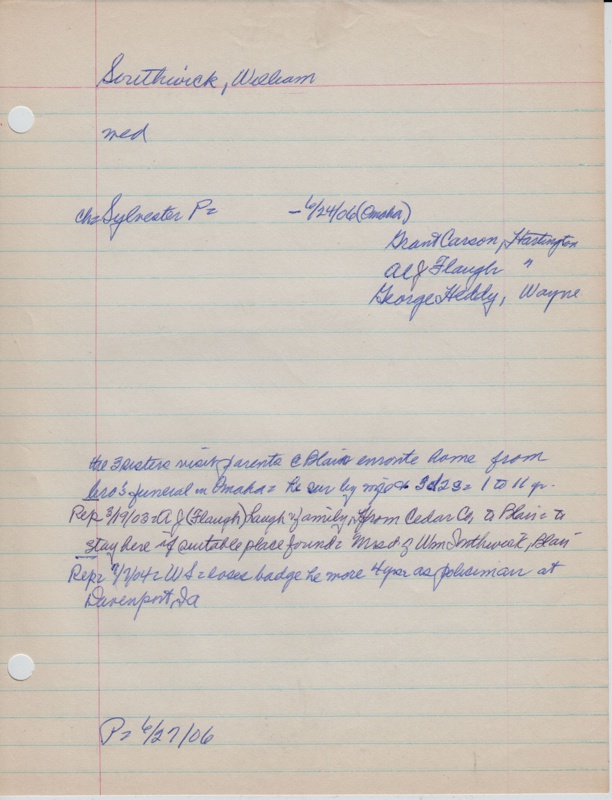 Southwick, William
med
ch= Sylvester P=  - 6/24/06 (Omaha)
Grant Carson, Hartington
A J Flaugh "
George Heddy, Wayne
the 3 sisters visit parents @ Blair enroute home from
bro's funeral in Omaha= he sur by 3d 2s = 1 to 11 yr.
Rep 3/19/03= A J (Flaugh) & family, from Cedar Co to Blair= to
stay here if suitable place found= Wm Southwick, Blair
Rep= /1/04= W S= loses badge he wore 4 yrs as policeman at
Davenport, Ia
P= 6/27/06